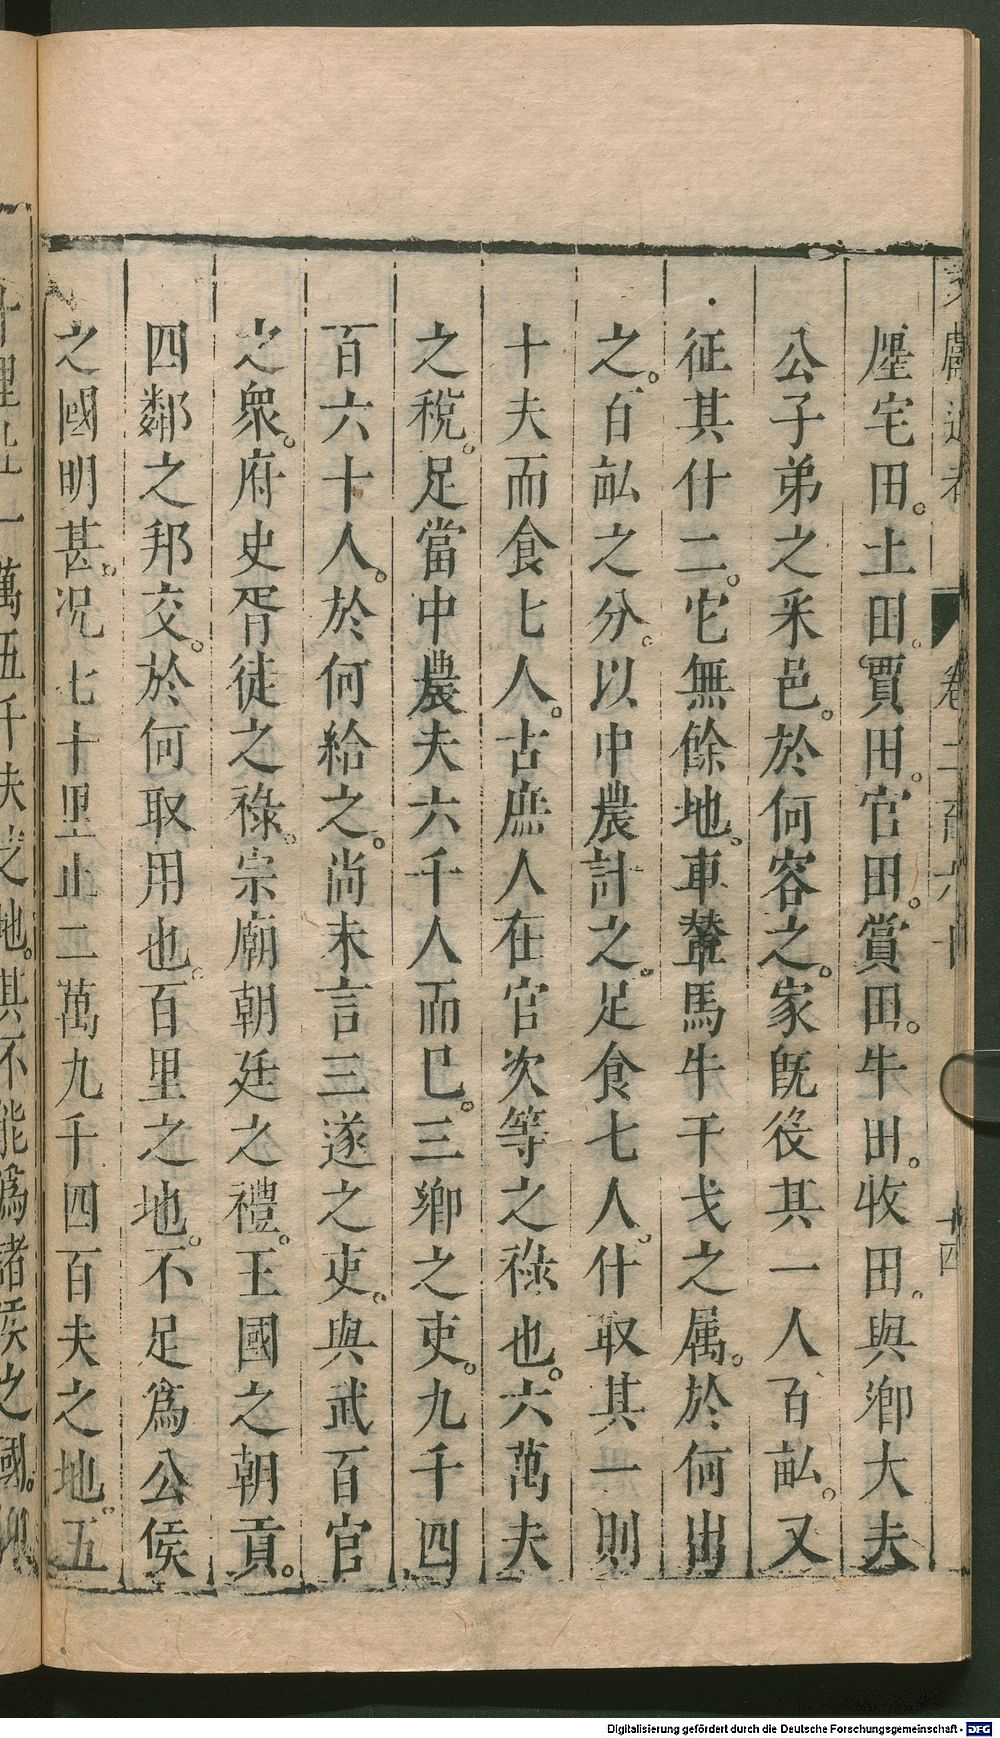 廛宅田。土田。賈田。官田。賞田。牛田。牧田。與鄉大夫
公子弟之采邑。於何容之。家旣役其一人百畝。又
征其什二。它無餘地。車輦馬牛干戈之属。於何出
之。百畝之分。以中農計之。足食七人。什取其一則
十夫而食七人。古庶人在官次等之祿也。六萬夫
之稅。足當中農夫六千人而巳。三鄉之吏。九千四
百六十人。於何給之。尚未言三遂之吏。與武百官
之衆。府史胥徒之祿。宗廟朝廷之禮。王國之朝貢。
四鄰之邦交。於何取用也。百里之地。不足爲公侯
之國明甚。况七十里止二萬九千四百夫之地。五
文獻通考 卷二百六十 十四
萬五千夫之地。其不能爲諸侯之國。
Digitalisierung gefördert durch die Deutsche Forschungsgemeinschaft - DFG